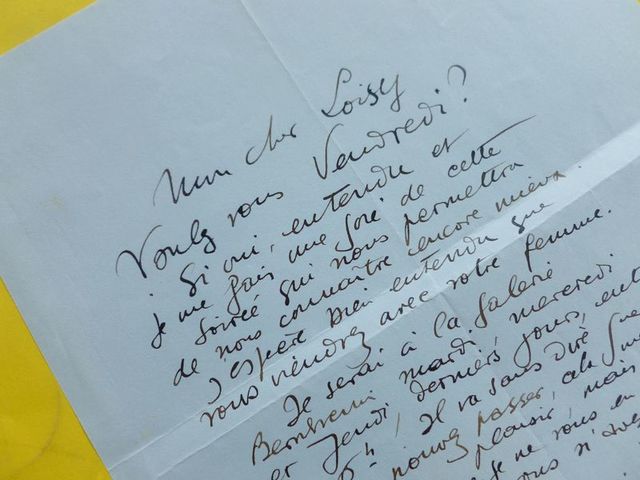 Mon cher Loisy
Voulez vous Vendredi ?
Si oui, entendu et
je me fais une joie de cette
soirée qui nous permettra
de nous connaître encore mieux.
J'espère bien entendu que
vous viendrez avec votre femme.
Je serai à la Galerie
Bernheim mardi, mercredi
et Jeudi, derniers jours, ent
5h, Il va sans dire que
pouvez passer,
plaisir, mais
je ne vous en
vous n'avez